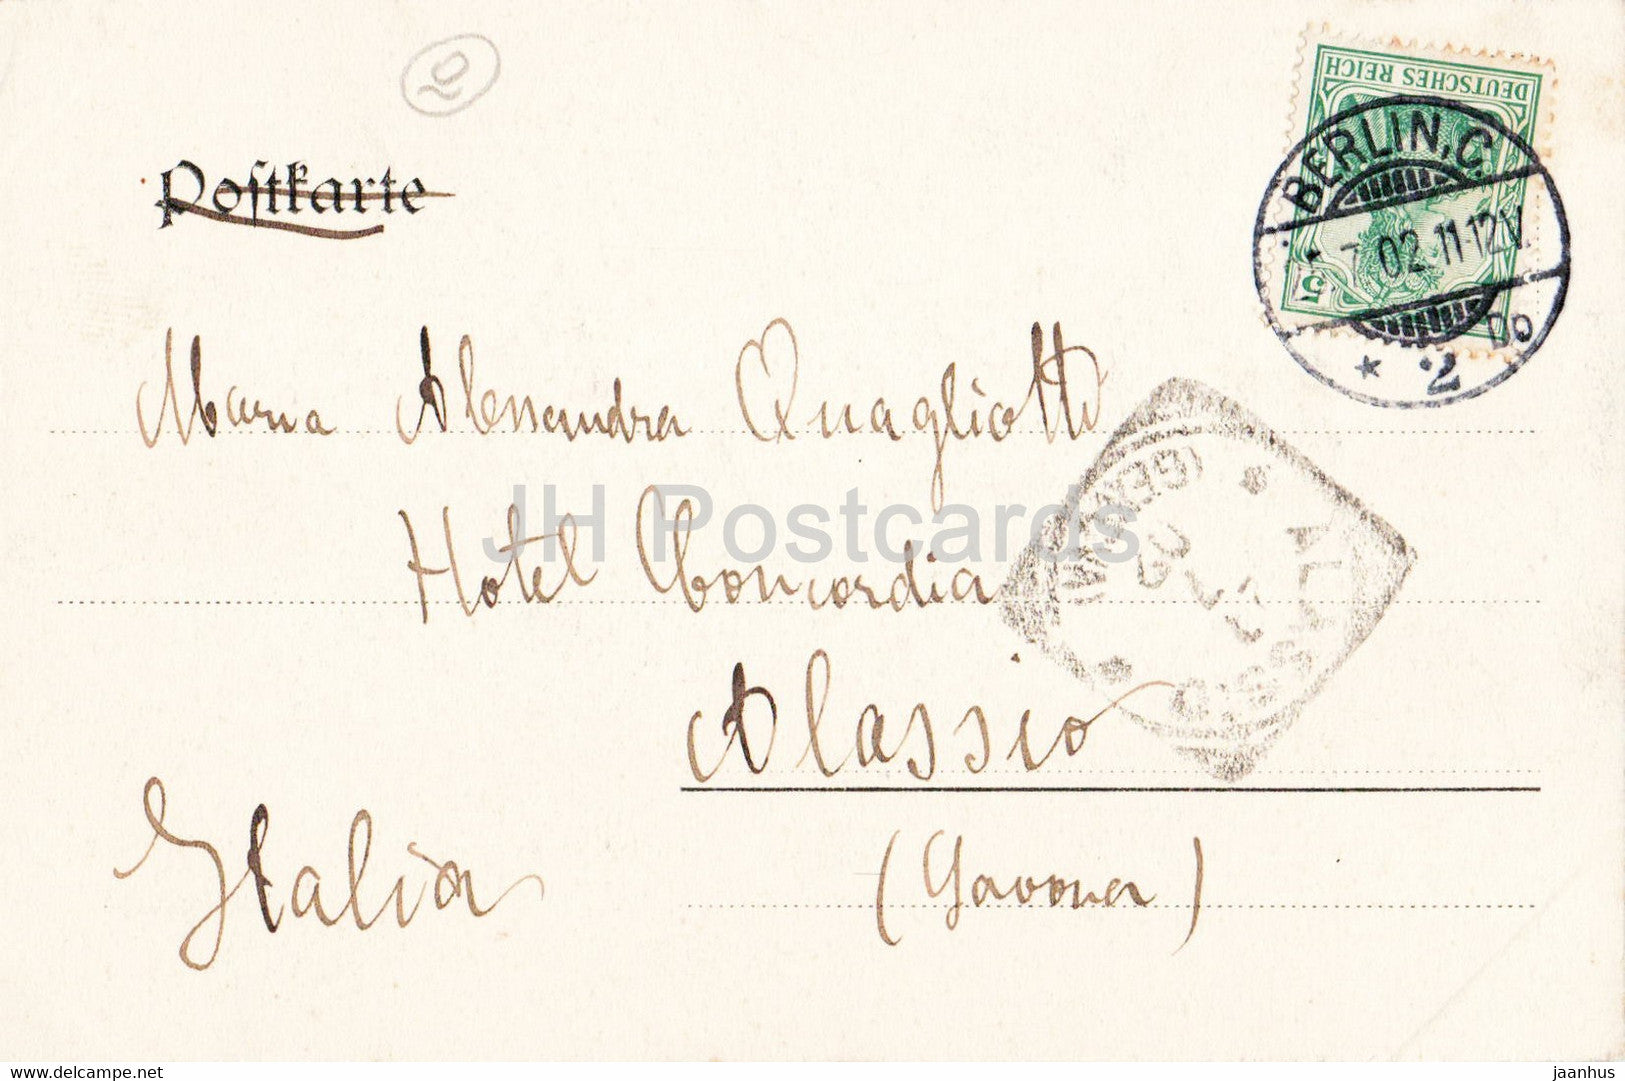 Postkarte
DEUTSCHES REICH
5
BERLIN, C.
7.02.11-12V.
* 2
Maria Alessandra Quagliotti
Hotel Concordia
Alassio
(Savona)
Italia
JH Postcards
jaanhus
www.delcampe.net